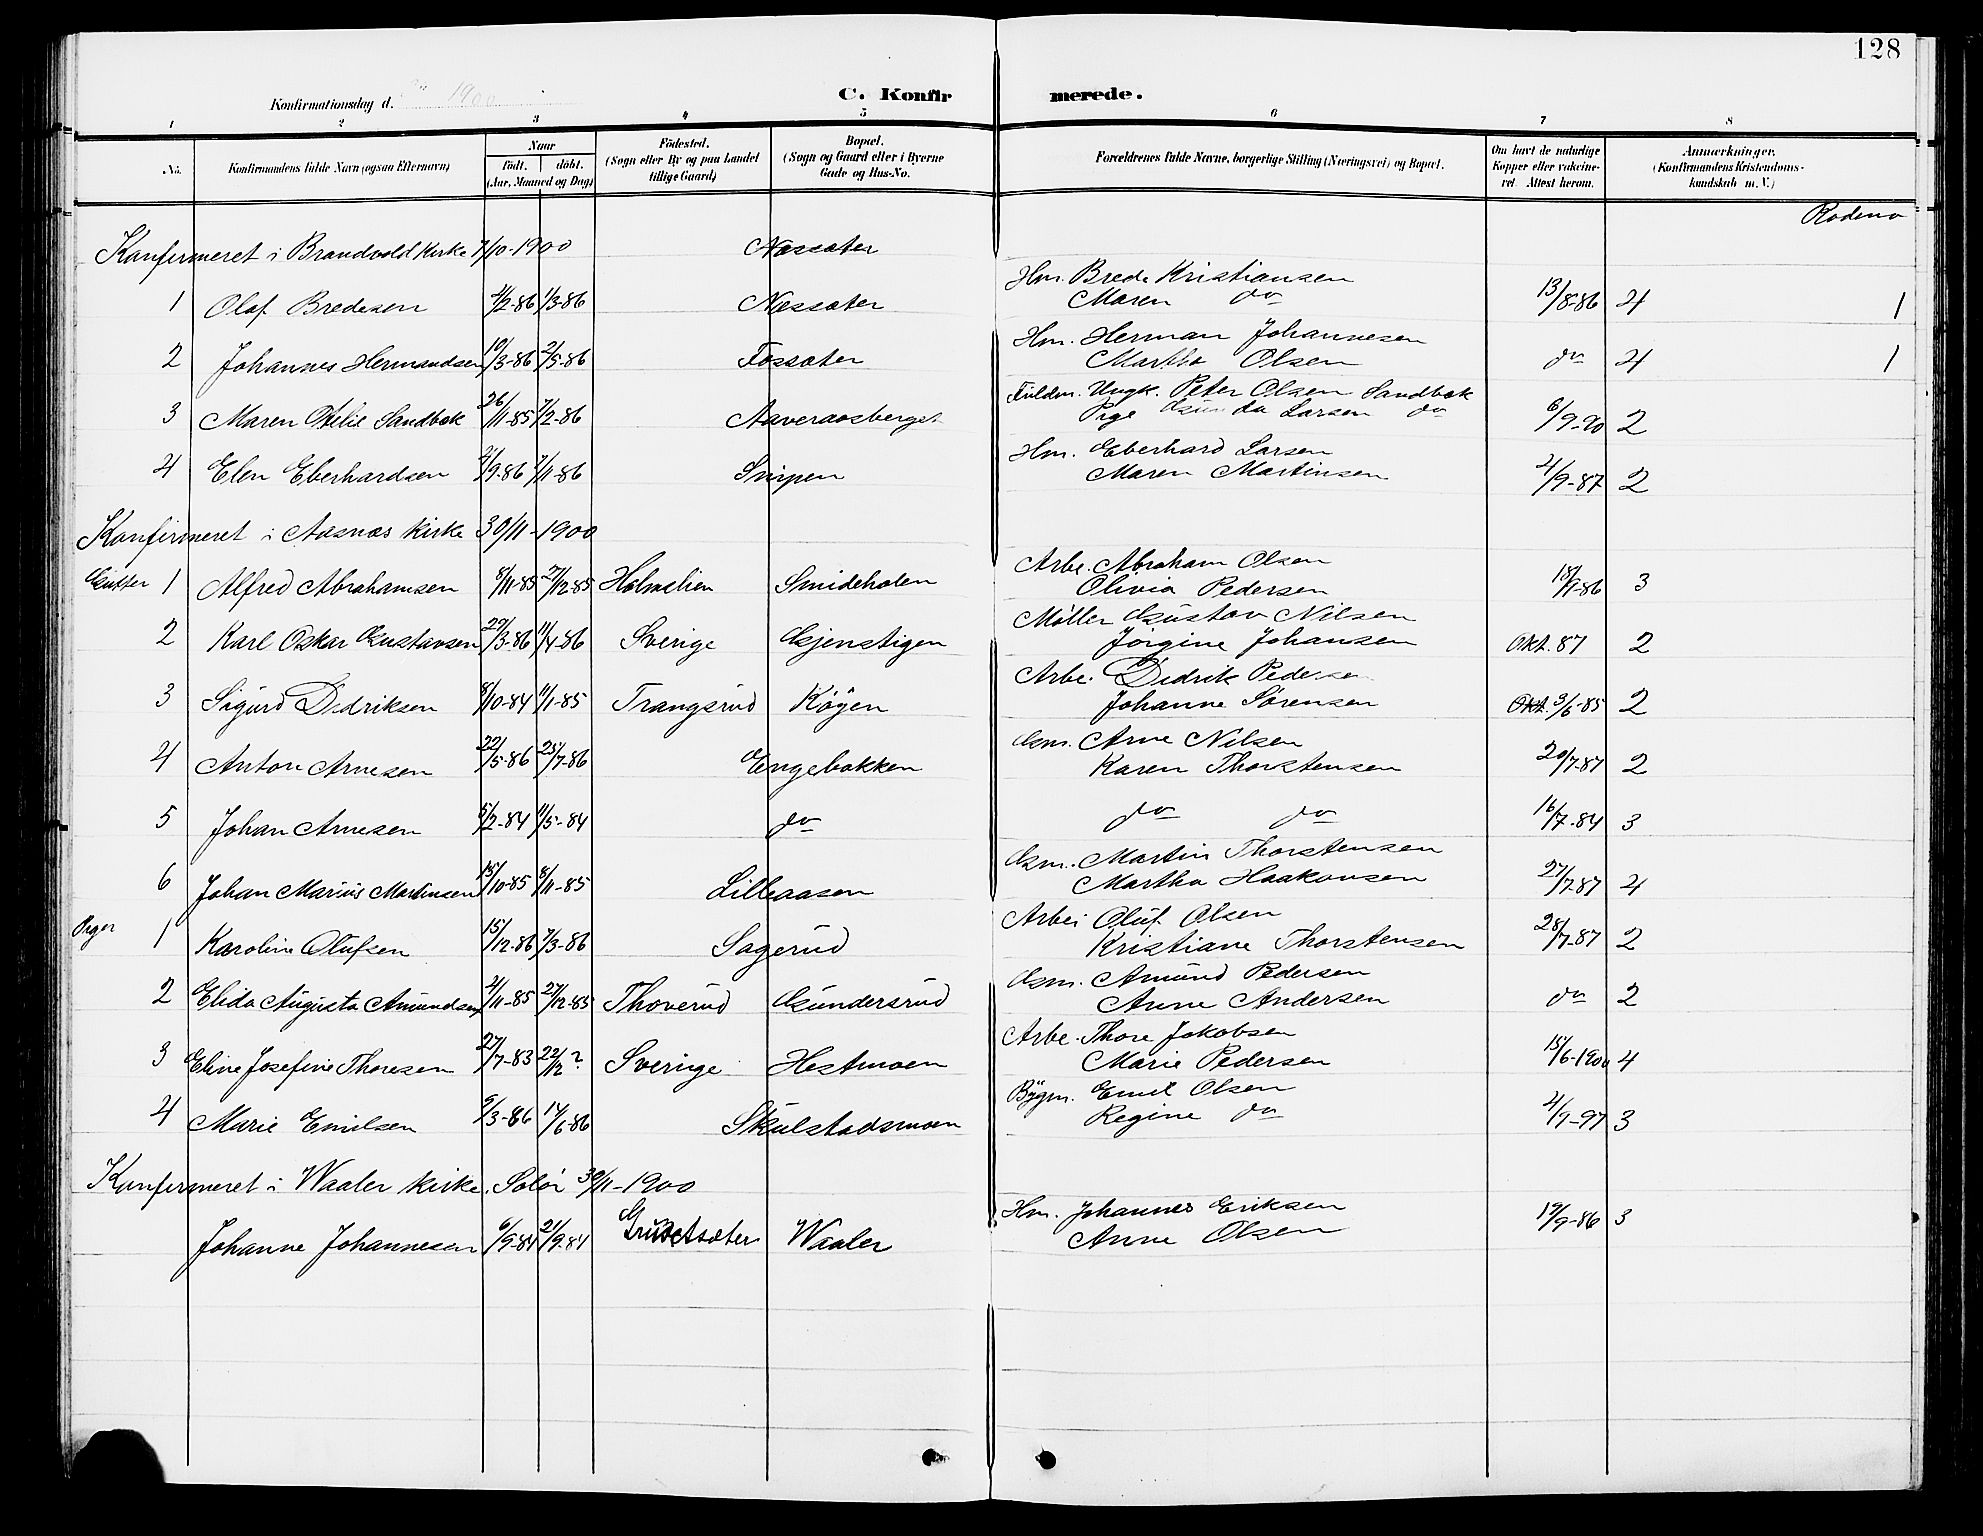 128
Konfirmationsdag d. 1900 C. Konfirmerede.
1 2 3 4 5 6 7 8
No. Konfirmandens fulde Navn (ogsaa Efternavn) Naar født. døbt. (Aar, Maaned og Dag) Födested. (Sogn eller By og paa Landet tillige Gaard) Bopæl. (Sogn og Gaard eller i Byerne Gade og Hus-No. Forældrenes fulde Navne, borgerlige Stilling (Næringsvei) og Bopæl. Om havt de naturlige Kopper eller vakcineret. Attest herom. Anmærkninger. (Konfirmandens Kristendomskundskab m. V.)
Rodena
Konfirmeret i Brandvold Kirke 7/10-1900 Næssæter
1 Olaf Bredesen 4/2-86 1/3-86 Næssæter Hm. Brede Kristiansen Maren do 13/8-86 4 1
2 Johannes Hermandsen 19/3-86 2/5-86 Fossæter Hm. Herman Johannesen Martha Olsen do 4 1
3 Maren Otelie Sandbæk 26/11-85 7/2-86 Aaveraasberget Fuldm. Ungk. Peter Olsen Sandbæk Pige Gunda Larsen do 6/9-90 2
4 Elen Eberhardsen 2/9-86 7/11-86 Snipen Hm. Eberhard Larsen Maren Martinsen 4/9-87 2
Konfirmeret i Aasnæs Kirke 30/11-1900
Gutter 1 Alfred Abrahamsen 8/11-85 27/12-85 Holmelien Smideholen Arbe. Abraham Olsen Olivia Pedersen 15/9-86 3
2 Karl Oskar Gustavsen 22/3-86 11/4-86 Sverige Gjenstigen Møller Gustav Nilsen Jørgine Johansen Okt. 87 2
3 Sigurd Didriksen 8/10-84 11/1-85 Trangsrud Køyen Arbe. Didrik Pedersen Johanne Sørensen Okt. 3/6-85 2
4 Anton Arnesen 22/5-86 25/7-86 Engebakken Gm. Arne Nilsen Karen Thorstensen 20/7-87 2
5 Johan Arnesen 5/2-84 11/5-84 do do do 16/7-84 3
6 Johan Marius Martinsen 15/10-85 8/11-85 Lilleaasen Gm. Martin Thorstensen Martha Haakonsen 27/7-87 4
Piger 1 Karoline Olufsen 15/12-86 7/3-86 Sagerud Arbei Oluf Olsen Kristiane Thorstensen 28/7-87 2
2 Elida Augusta Amundsen 4/11-85 27/12-85 Thoverud Gundersrud Gm. Amund Pedersen Anne Andersen do 2
3 Eline Josefine Thoresen 27/7-83 22/12? Sverige Hestmoen Arbe. Thore Jakobsen Marie Pedersen 15/6-1900 4
4 Marie Emilsen 9/3-86 14/6-86 Skulstadsmoen Bygm. Emil Olsen Regine do 4/9-97 3
Konfirmeret i Waaler Kirke, Solør 30/11-1900
Johanne Johannesen 6/9-84 21/9-84 Grusetsæter Waaler Hm. Johannes Eriksen Anne Olsen 19/9-86 3